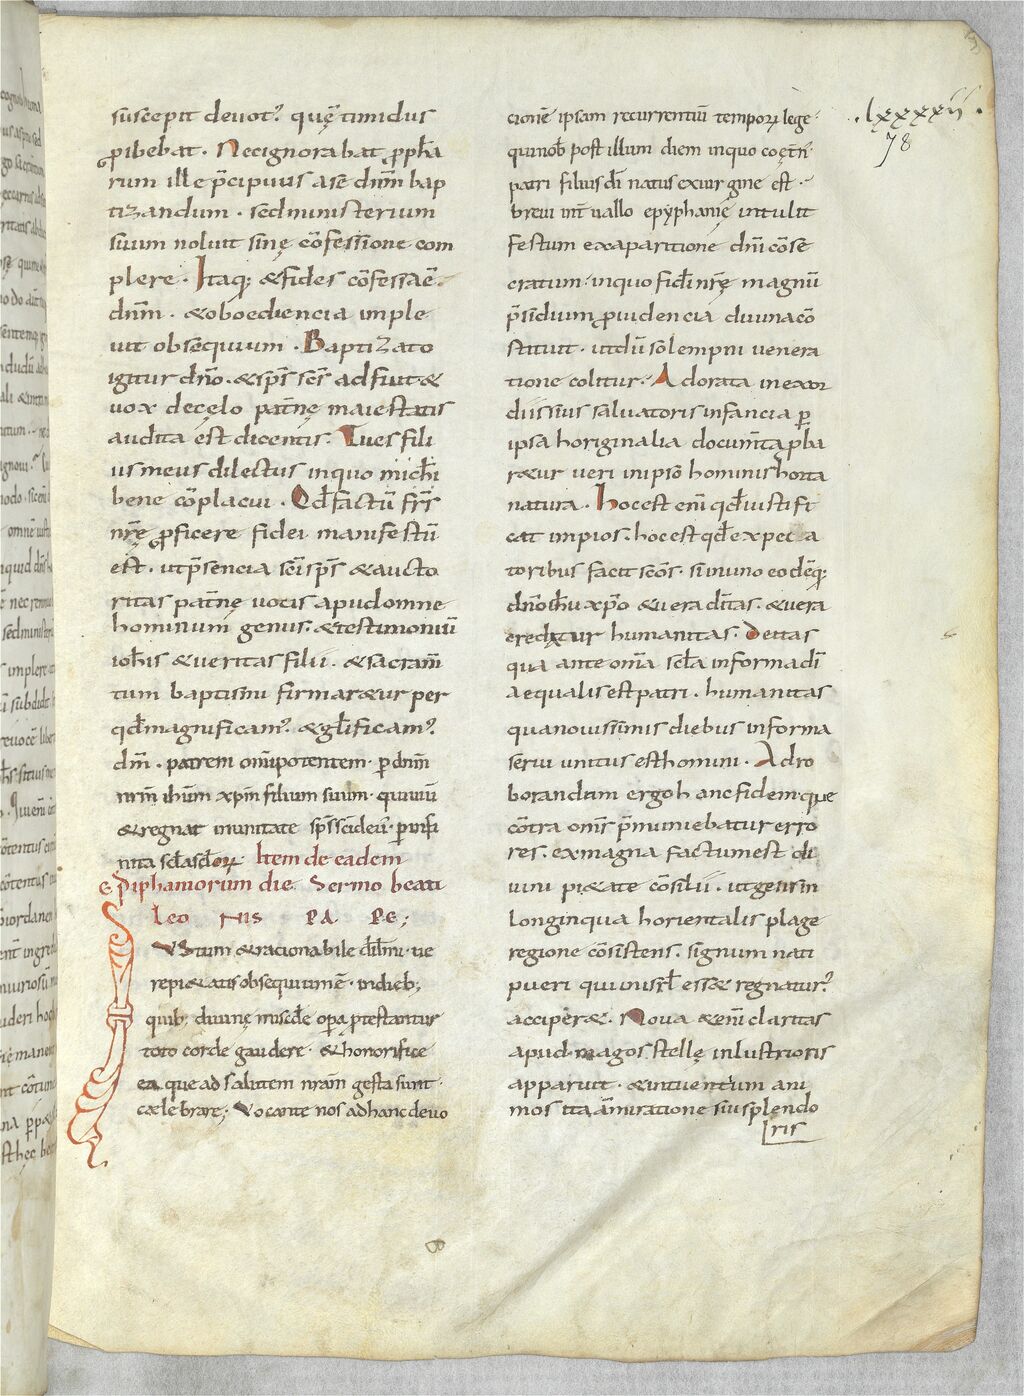 suscepit devot᾽ quę timidus
ꝓibebat . Nec ignorabat ꝓph̄a
rum ille p̄cipuus a se dn̄m bap
tizandum . sed ministerium
suum noluit sinę cōfessione com
plere . Itaq; & fides cōfessa ē
dn̄m . & oboediencia imple
uit obsequium . Baptizato
igitur dn̄o . & sp̄s sc̄s adfuit &
uox de cęlo pat̄nę maiestatis
audita est dicentis . Tu es fili
us meus dilectus in quo michi
bene cōplacui . Qđ factū fr̄s
nr̄ę ꝓficere fidei manifestū
est . ut p̄sencia sc̄i sp̄s & aucto
ritas pat̄nę uocis apud omne
hominum genus . & testimoniū
ioh̄is & ueritas filii . & sacram̄
tum baptismi firmar&ur per
qđ magnificam᾽ . & gl̄ificam᾽
dm̄ . patrem om̄ipotentem . p̱ dn̄m
nr̄m ih̄um xp̄m filium suum . qui uiu̅
& regnat in unitate sp̄s sc̄i deus . p̱ infi
nita sc̄la sc̄loꝝ Item de eadem
Epiphaniorum die . Sermo beati
Leo nis pa pe ;
Iustum & racionabile dil̄mi . ue
rę pi&atis obsequium ē . in dieb;
quib; diuinę misc̄dę oꝑa ꝓtestantur
toto corde gaudere . & honorifice
ea que ad salutem nr̄am gesta sunt .
cæle brare ; Vocante nos ad hanc deuo
.lxxxxvii .
78
cionē ipsam recurrentiū tempoꝝ lege .
qui nob̄ post illum diem in quo coęt̄n᾽
patri filius dī natus ex uirgine est .
breui int̄uallo epyphanię intulit
festum ex aparitione dn̄i cōse
cratum . in quo fidi nr̄ę magnū
p̄sidium ꝓuidencia diuina cō
stituit . ut dū solempni uenera
tione colitur . Adorata in exor
diis suis saluatoris infancia ꝑ
ipsa horiginalia docum̄ta ꝓba
r&ur ueri in ipso hominis horta
natura . Hoc est eni̅ qđ iustifi
cat impios . hoc est qđ ex pecca
toribus facit sc̄os . si in uno eodēq;
dn̄o ih̄u xp̄o & uera dītas . & uera
creditur humanitas . Deitas
qua ante om̄a sc̄la in forma dī
aequalis est patri . humanitas
qua nouissimis diebus in forma
serui unitus est homini . Ad ro
borandam ergo hanc fidem que
cōtra om̄s p̄muniebatur erro
res . ex magna factum est di
uini pi&ate cōsilii . ut gens in
longinqua horientalis plage
regione cōsistens . signum nati
pueri qui in isrl̄ ess& regnatur᾽
acciper& . Noua & enī claritas
apud magos stellę inlustrioris
apparuit . & intuentium ani
mos ita āmiratione sui splendo
ris